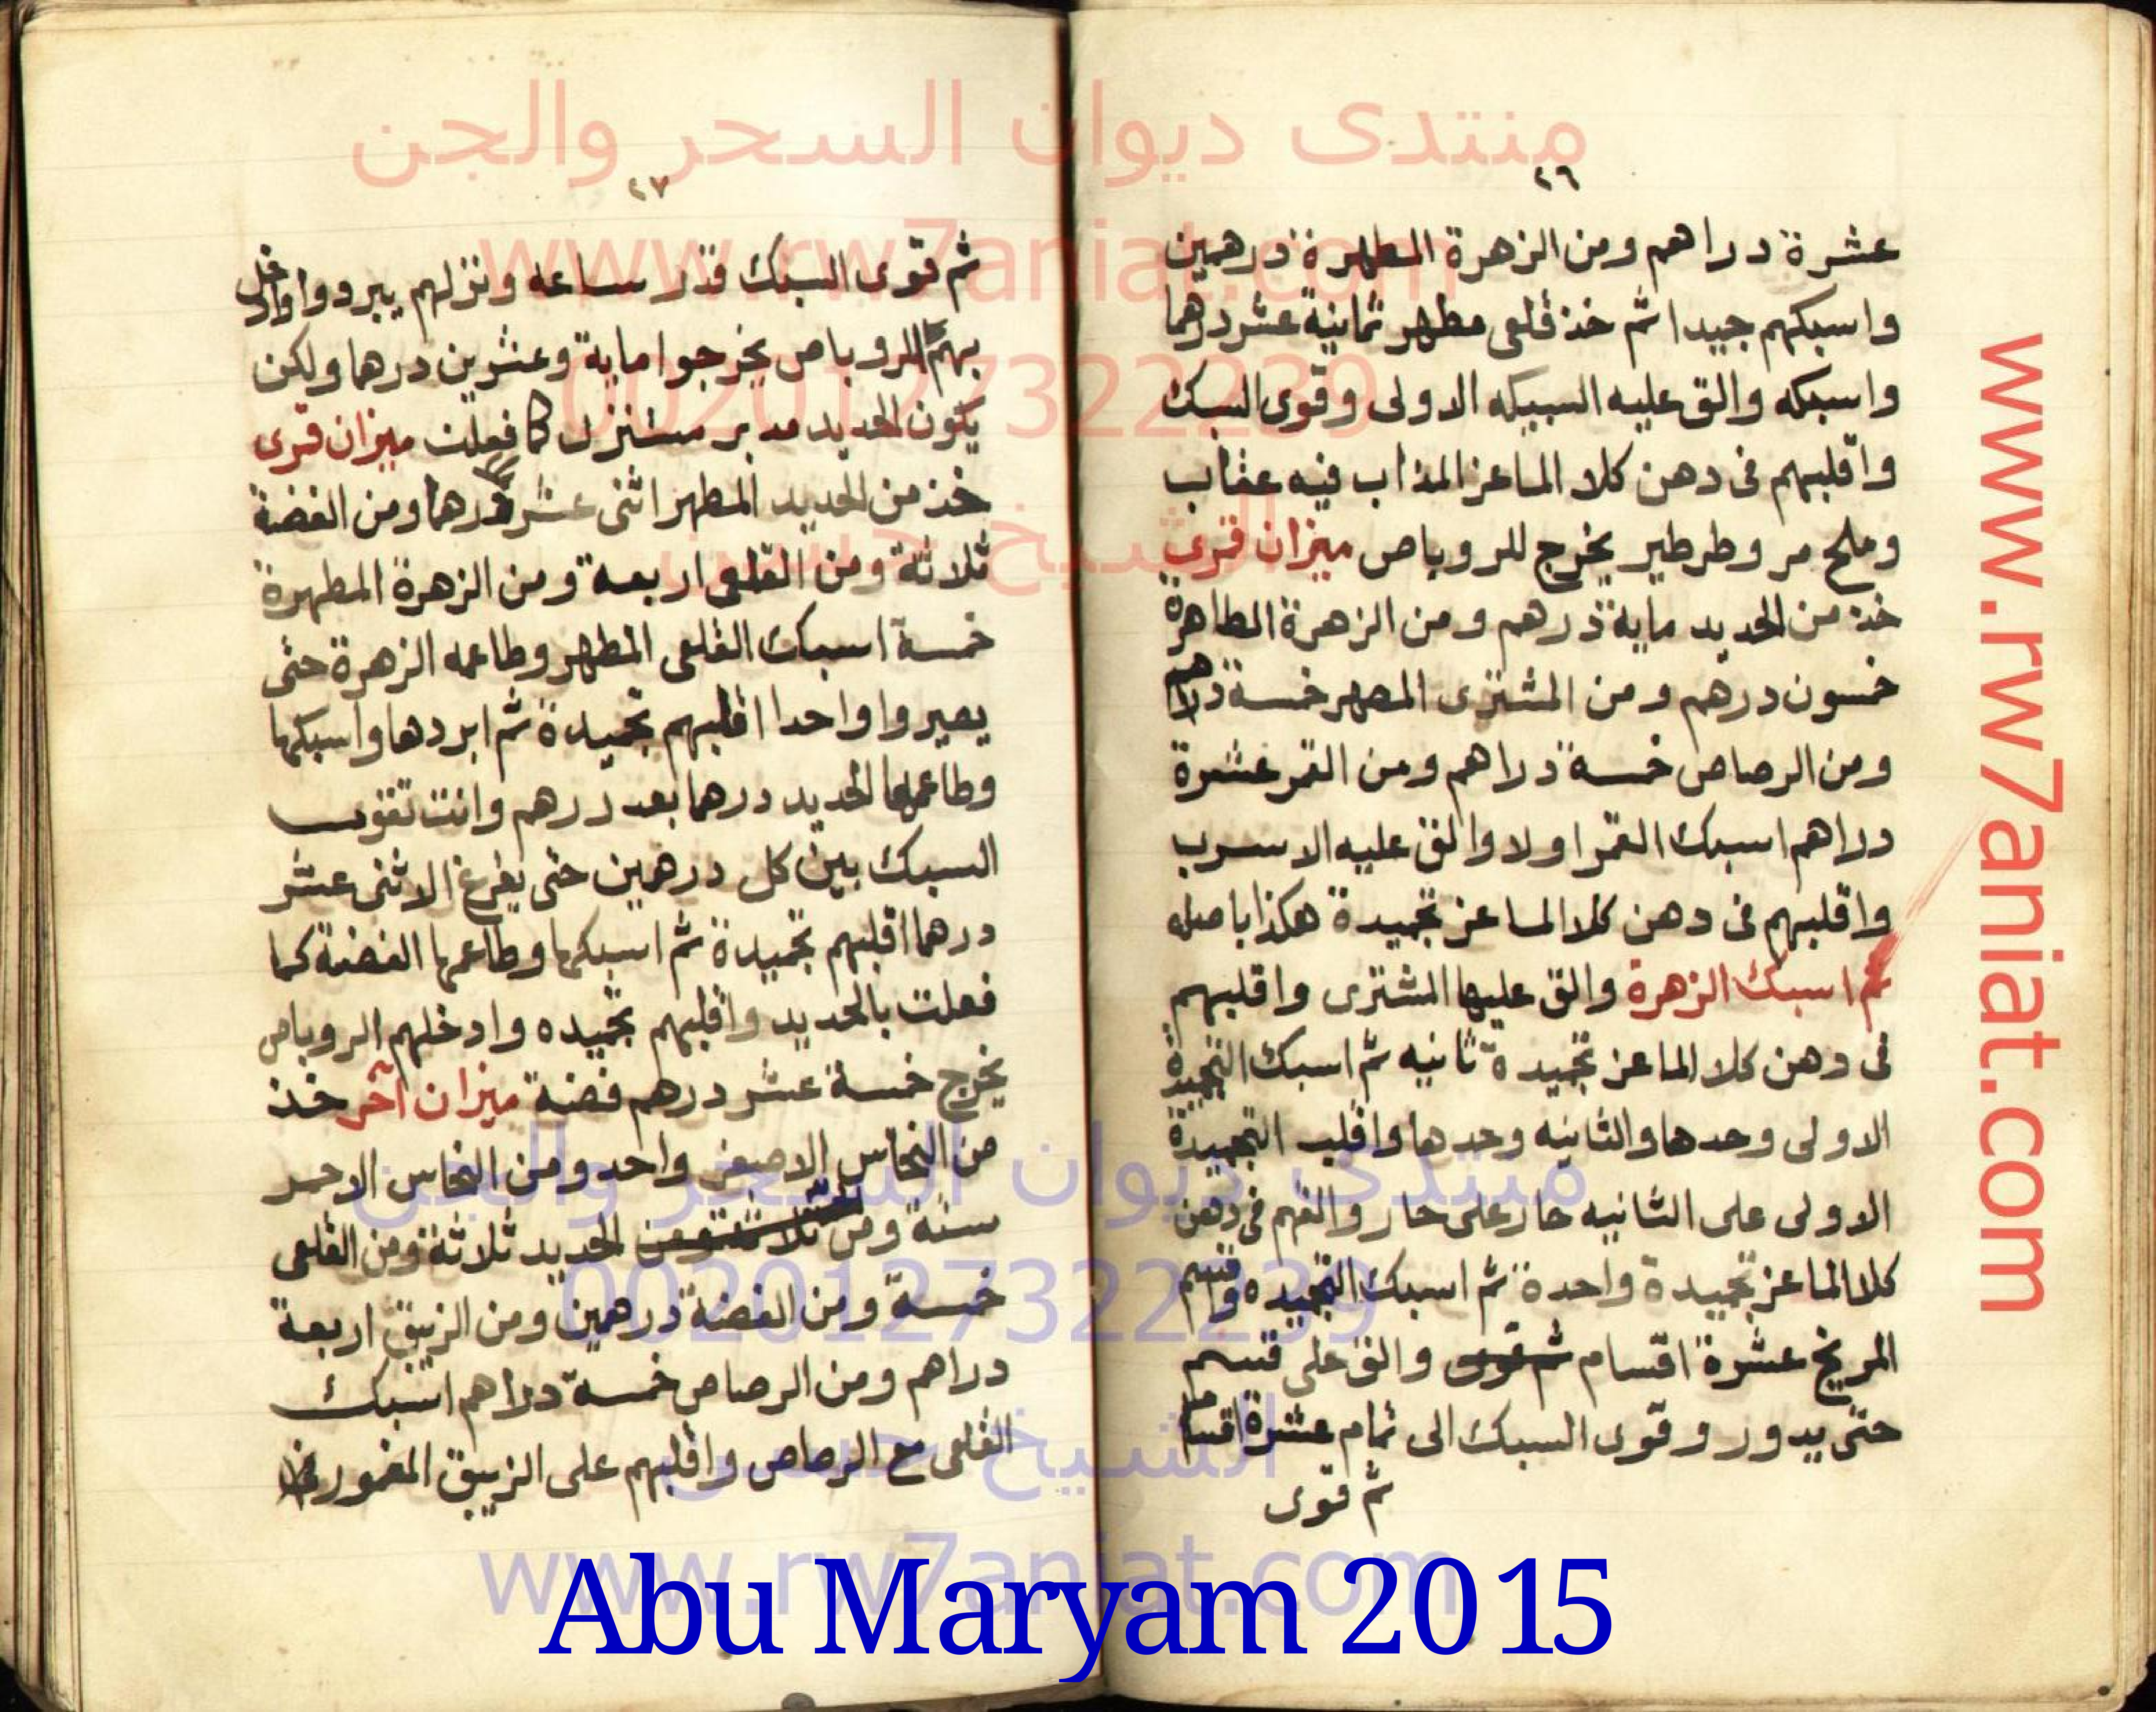 منتدى ديوان السحر والجن
www.rw7aniat.com
00201273322239
الشيخ حسن
www.rw7aniat.com
٢٦
عشرة دراهم ومن الزهرة المطهرة درهمين
واسبكهم جيدا ثم خذ قلعى مطهر ثمانية عشر درهما
واسبكه والق عليه السبيكه الاولى وقوى السبك
واقلبهم فى دهن كلا الماعز المذاب فيه عقاب
وملح مر وطرطير يخرج للروباص ميزان قمرى
خذ من الحديد ماية درهم ومن الزهرة الطاهرة
خمسون درهم ومن المشترى المطهر خمسة دراهم
ومن الرصاص خمسة دراهم ومن القمر عشرة
دراهم اسبك القمر اولا والق عليه الاسرب
واقلبهم فى دهن كلا الماعز تجميدة هكذا باصله
ثم اسبك الزهرة والق عليها المشترى واقلبهم
فى دهن كلا الماعز تجميدة ثانيه ثم اسبك التجميدة
الاولى وحدها والثانيه وحدها واقلب التجميدة
الاولى على الثانيه حار على حار والقهم فى دهن
كلا الماعز تجميدة واحدة ثم اسبك التجميده واقسم
المريخ عشرة اقسام ثم قوى والق على قسم
حتى يدور وقوى السبك الى تمام عشرة اقسام
ثم قوى
٢٧
ثم قوى السبك قدر ساعه ونزلهم يبردوا وادخل
بهم الروباص يخرجوا ماية وعشرين درهما ولكن
يكون الحديد مدبر مستنزل كما فعلت ميزان قمرى
خذ من الحديد المطهر اثنى عشر درهما ومن الفضة
ثلاثة ومن القلعى اربعة ومن الزهرة المطهرة
خمسة اسبك القلعى المطهر وطاعمه الزهرة حتى
يصيروا واحدا اقلبهم تجميدة ثم ابردها واسبكها
وطاعمها الحديد درهما بعد درهم وانت تقوى
السبك بين كل درهمين حتى يفرغ الاثنى عشر
درهما اقلبهم تجميدة ثم اسبكها وطاعمها الفضة كما
فعلت بالحديد واقلبهم تجميده وادخلهم الروباص
يخرج خمسة عشر درهم فضة ميزان آخر خذ
من النحاس الاصفر واحد ومن النحاس الاحمر
ستة ومن الحديد ثلاثة ومن القلعى
خمسة ومن الفضة درهمين ومن الزيبق اربعة
دراهم ومن الرصاص خمسة دراهم اسبك
القلعى مع الرصاص واقلبهم على الزيبق المغمور
منتدى ديوان السحر والجن
00201273322239
الشيخ حسن
www.rw7aniat.com
Abu Maryam 2015